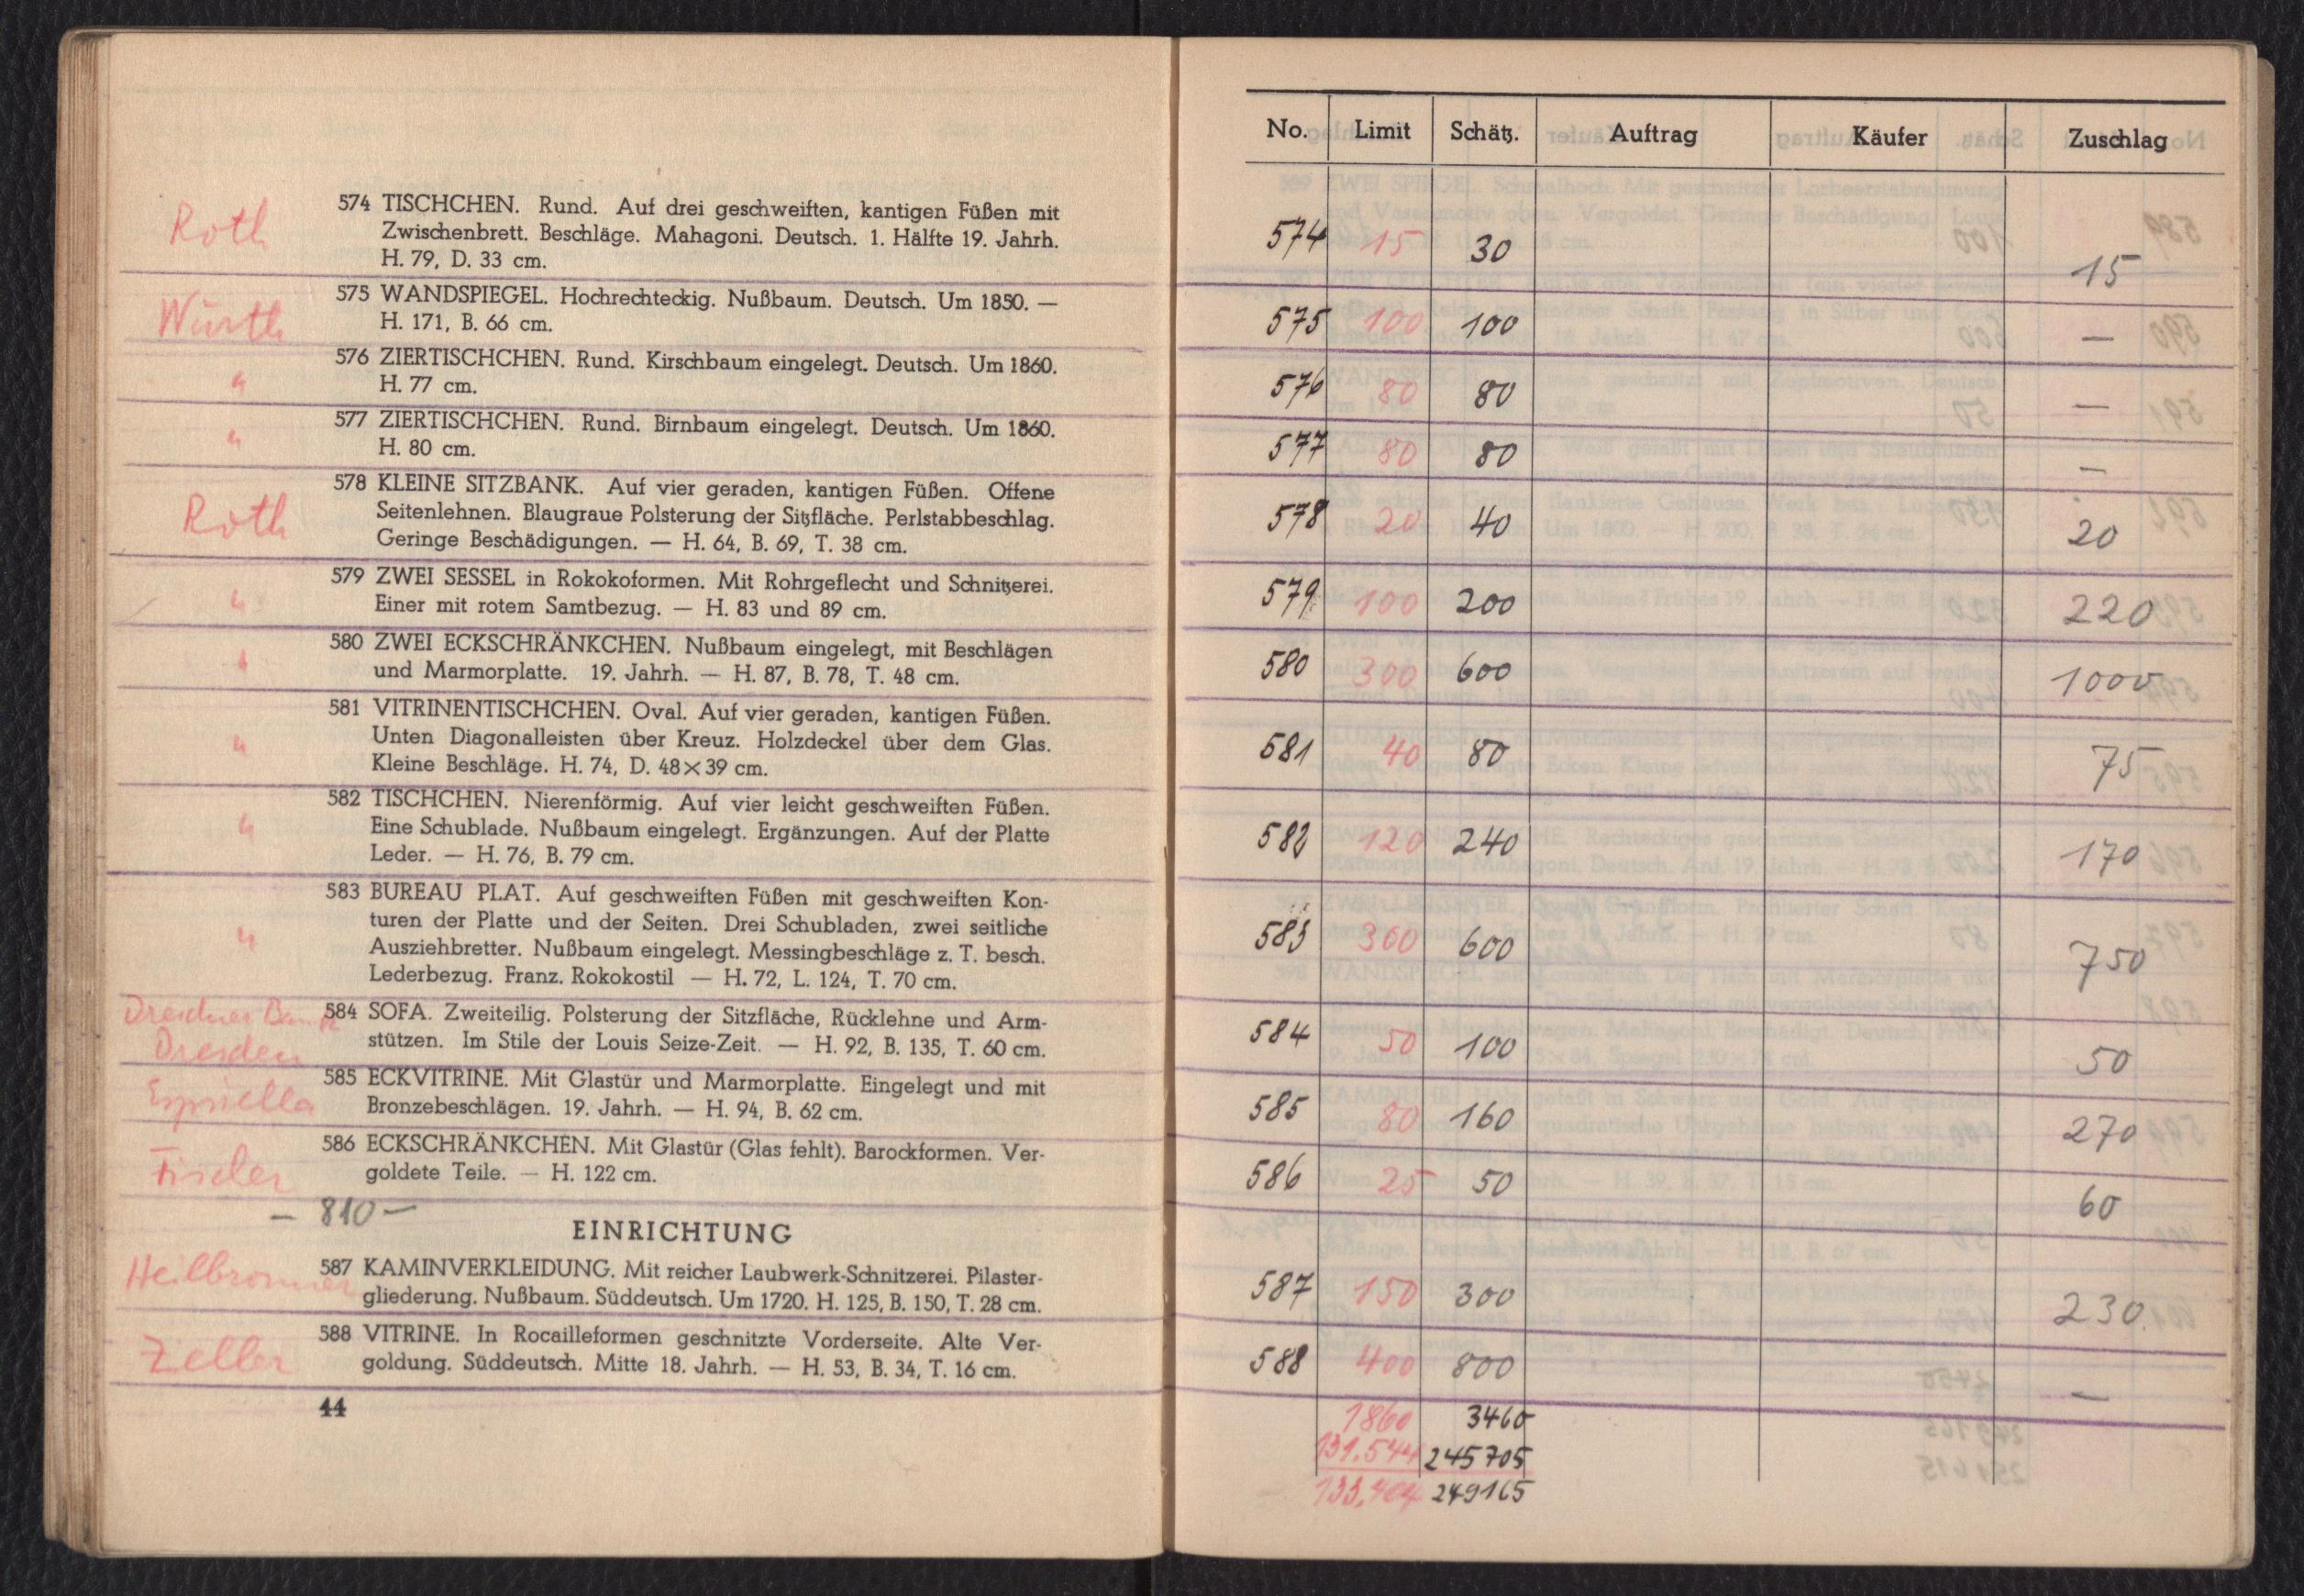 Roth
574 TISCHCHEN. Rund. Auf drei geschweiften, kantigen Füßen mit
Zwischenbrett. Beschläge. Mahagoni. Deutsch. 1. Hälfte 19. Jahrh.
H. 79, D. 33 cm.
Würth
575 WANDSPIEGEL. Hochrechteckig. Nußbaum. Deutsch. Um 1850. —
H. 171, B. 66 cm.
"
576 ZIERTISCHCHEN. Rund. Kirschbaum eingelegt. Deutsch. Um 1860.
H. 77 cm.
"
577 ZIERTISCHCHEN. Rund. Birnbaum eingelegt. Deutsch. Um 1860.
H. 80 cm.
Roth
578 KLEINE SITZBANK. Auf vier geraden, kantigen Füßen. Offene
Seitenlehnen. Blaugraue Polsterung der Sitzfläche. Perlstabbeschlag.
Geringe Beschädigungen. — H. 64, B. 69, T. 38 cm.
"
579 ZWEI SESSEL in Rokokoformen. Mit Rohrgeflecht und Schnitzerei.
Einer mit rotem Samtbezug. — H. 83 und 89 cm.
"
580 ZWEI ECKSCHRÄNKCHEN. Nußbaum eingelegt, mit Beschlägen
und Marmorplatte. 19. Jahrh. — H. 87, B. 78, T. 48 cm.
"
581 VITRINENTISCHCHEN. Oval. Auf vier geraden, kantigen Füßen.
Unten Diagonalleisten über Kreuz. Holzdeckel über dem Glas.
Kleine Beschläge. H. 74, D. 48×39 cm.
"
582 TISCHCHEN. Nierenförmig. Auf vier leicht geschweiften Füßen.
Eine Schublade. Nußbaum eingelegt. Ergänzungen. Auf der Platte
Leder. — H. 76, B. 79 cm.
"
583 BUREAU PLAT. Auf geschweiften Füßen mit geschweiften Kon-
turen der Platte und der Seiten. Drei Schubladen, zwei seitliche
Ausziehbretter. Nußbaum eingelegt. Messingbeschläge z. T. besch.
Lederbezug. Franz. Rokokostil — H. 72, L. 124, T. 70 cm.
Dresdner Bank
Dresden
584 SOFA. Zweiteilig. Polsterung der Sitzfläche, Rücklehne und Arm-
stützen. Im Stile der Louis Seize-Zeit. — H. 92, B. 135, T. 60 cm.
Espriella
585 ECKVITRINE. Mit Glastür und Marmorplatte. Eingelegt und mit
Bronzebeschlägen. 19. Jahrh. — H. 94, B. 62 cm.
Fischer
586 ECKSCHRÄNKCHEN. Mit Glastür (Glas fehlt). Barockformen. Ver-
goldete Teile. — H. 122 cm.
— 810 —
EINRICHTUNG
Heilbronner
587 KAMINVERKLEIDUNG. Mit reicher Laubwerk-Schnitzerei. Pilaster-
gliederung. Nußbaum. Süddeutsch. Um 1720. H. 125, B. 150, T. 28 cm.
Zeller
588 VITRINE. In Rocailleformen geschnitzte Vorderseite. Alte Ver-
goldung. Süddeutsch. Mitte 18. Jahrh. — H. 53, B. 34, T. 16 cm.
44
No. Limit Schätz. Auftrag Käufer Zuschlag
574 15 30 15
575 100 100 —
576 80 80 —
577 80 80 —
578 20 40 20
579 100 200 220
580 300 600 1000
581 40 80 75
582 120 240 170
583 300 600 750
584 50 100 50
585 80 160 270
586 25 50 60
587 150 300 230
588 400 800 —
1860 3460
131.544 245705
133,404 249165